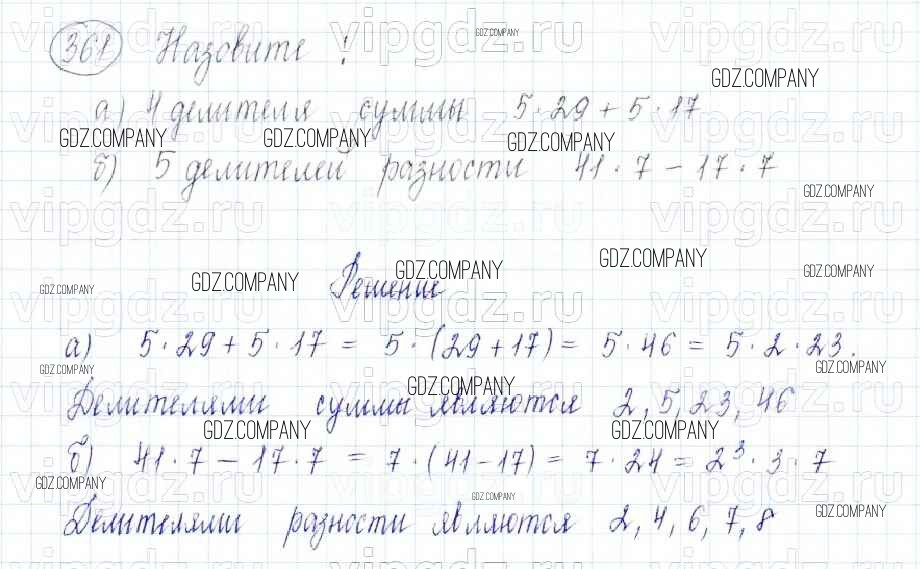 361 Назовите !
а) 4 делителя суммы 5·29+5·17
б) 5 делителей разности 41·7-17·7
Решение
а) 5·29+5·17 = 5·(29+17) = 5·46 = 5·2·23.
Делителями суммы являются 2, 5, 23, 46
б) 41·7-17·7 = 7·(41-17) = 7·24 = 2³·3·7
Делителями разности являются 2, 4, 6, 7, 8